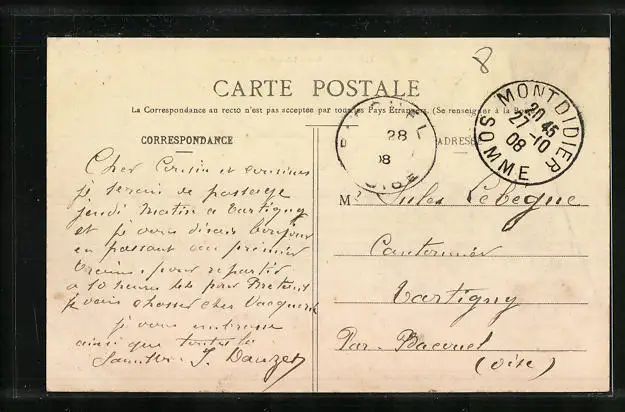 8
CARTE POSTALE
La Correspondance au recto n'est pas acceptée par tous les Pays Étrangers. (Se renseigner à la
CORRESPONDANCE
ADRESSE
MONTDIDIER
20 45
27-10
08
SOMME
28
08
OISE
Cher Cousin et cousines
je serai de passage
jeudi matin a Tartigny
et je vous dirais bonjour
en passant au premier
train, pour repartir
a 10 heures pour Breteuil
je vais chasser chez
je vous embrasse
ainsi que toute la
famille. J. Dauzet
M Jules Lebègue
Cantonnier
Tartigny
Par Bacouel
(Oise)